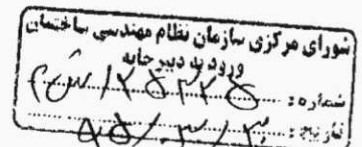 شورای مرکزی سازمان نظام مهندسی ساختمان
ورود به دبیرخانه
شماره :
تاریخ : ۹۵/۰۳/۳۰